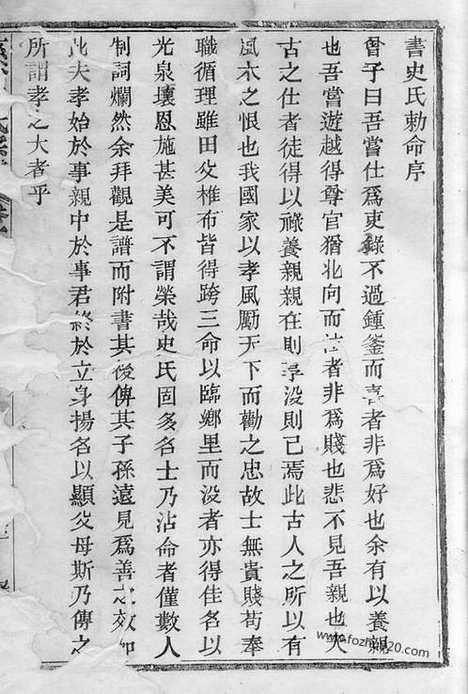 書史氏勅命序
曾子曰吾嘗仕爲吏錄不過鍾釜而喜者非爲好也余有以養親
也吾嘗遊越得尊官猶北向而泣者非爲賤也悲不見吾親也夫
古之仕者徒得以祿養親親在則享没則已焉此古人之所以有
風木之恨也我國家以孝風勵天下而勸之忠故士無貴賤苟奉
職循理雖田父椎布皆得跨三命以臨鄉里而没者亦得佳名以
光泉壤恩施甚美可不謂榮哉史氏固多名士乃沾命者僅數人
制詞爛然余拜觀是譜而附書其後俾其子孫遠見爲善之效如
此夫孝始於事親中於事君終於立身揚名以顯父母斯乃傳之
所謂孝之大者乎
www.fozhu920.com